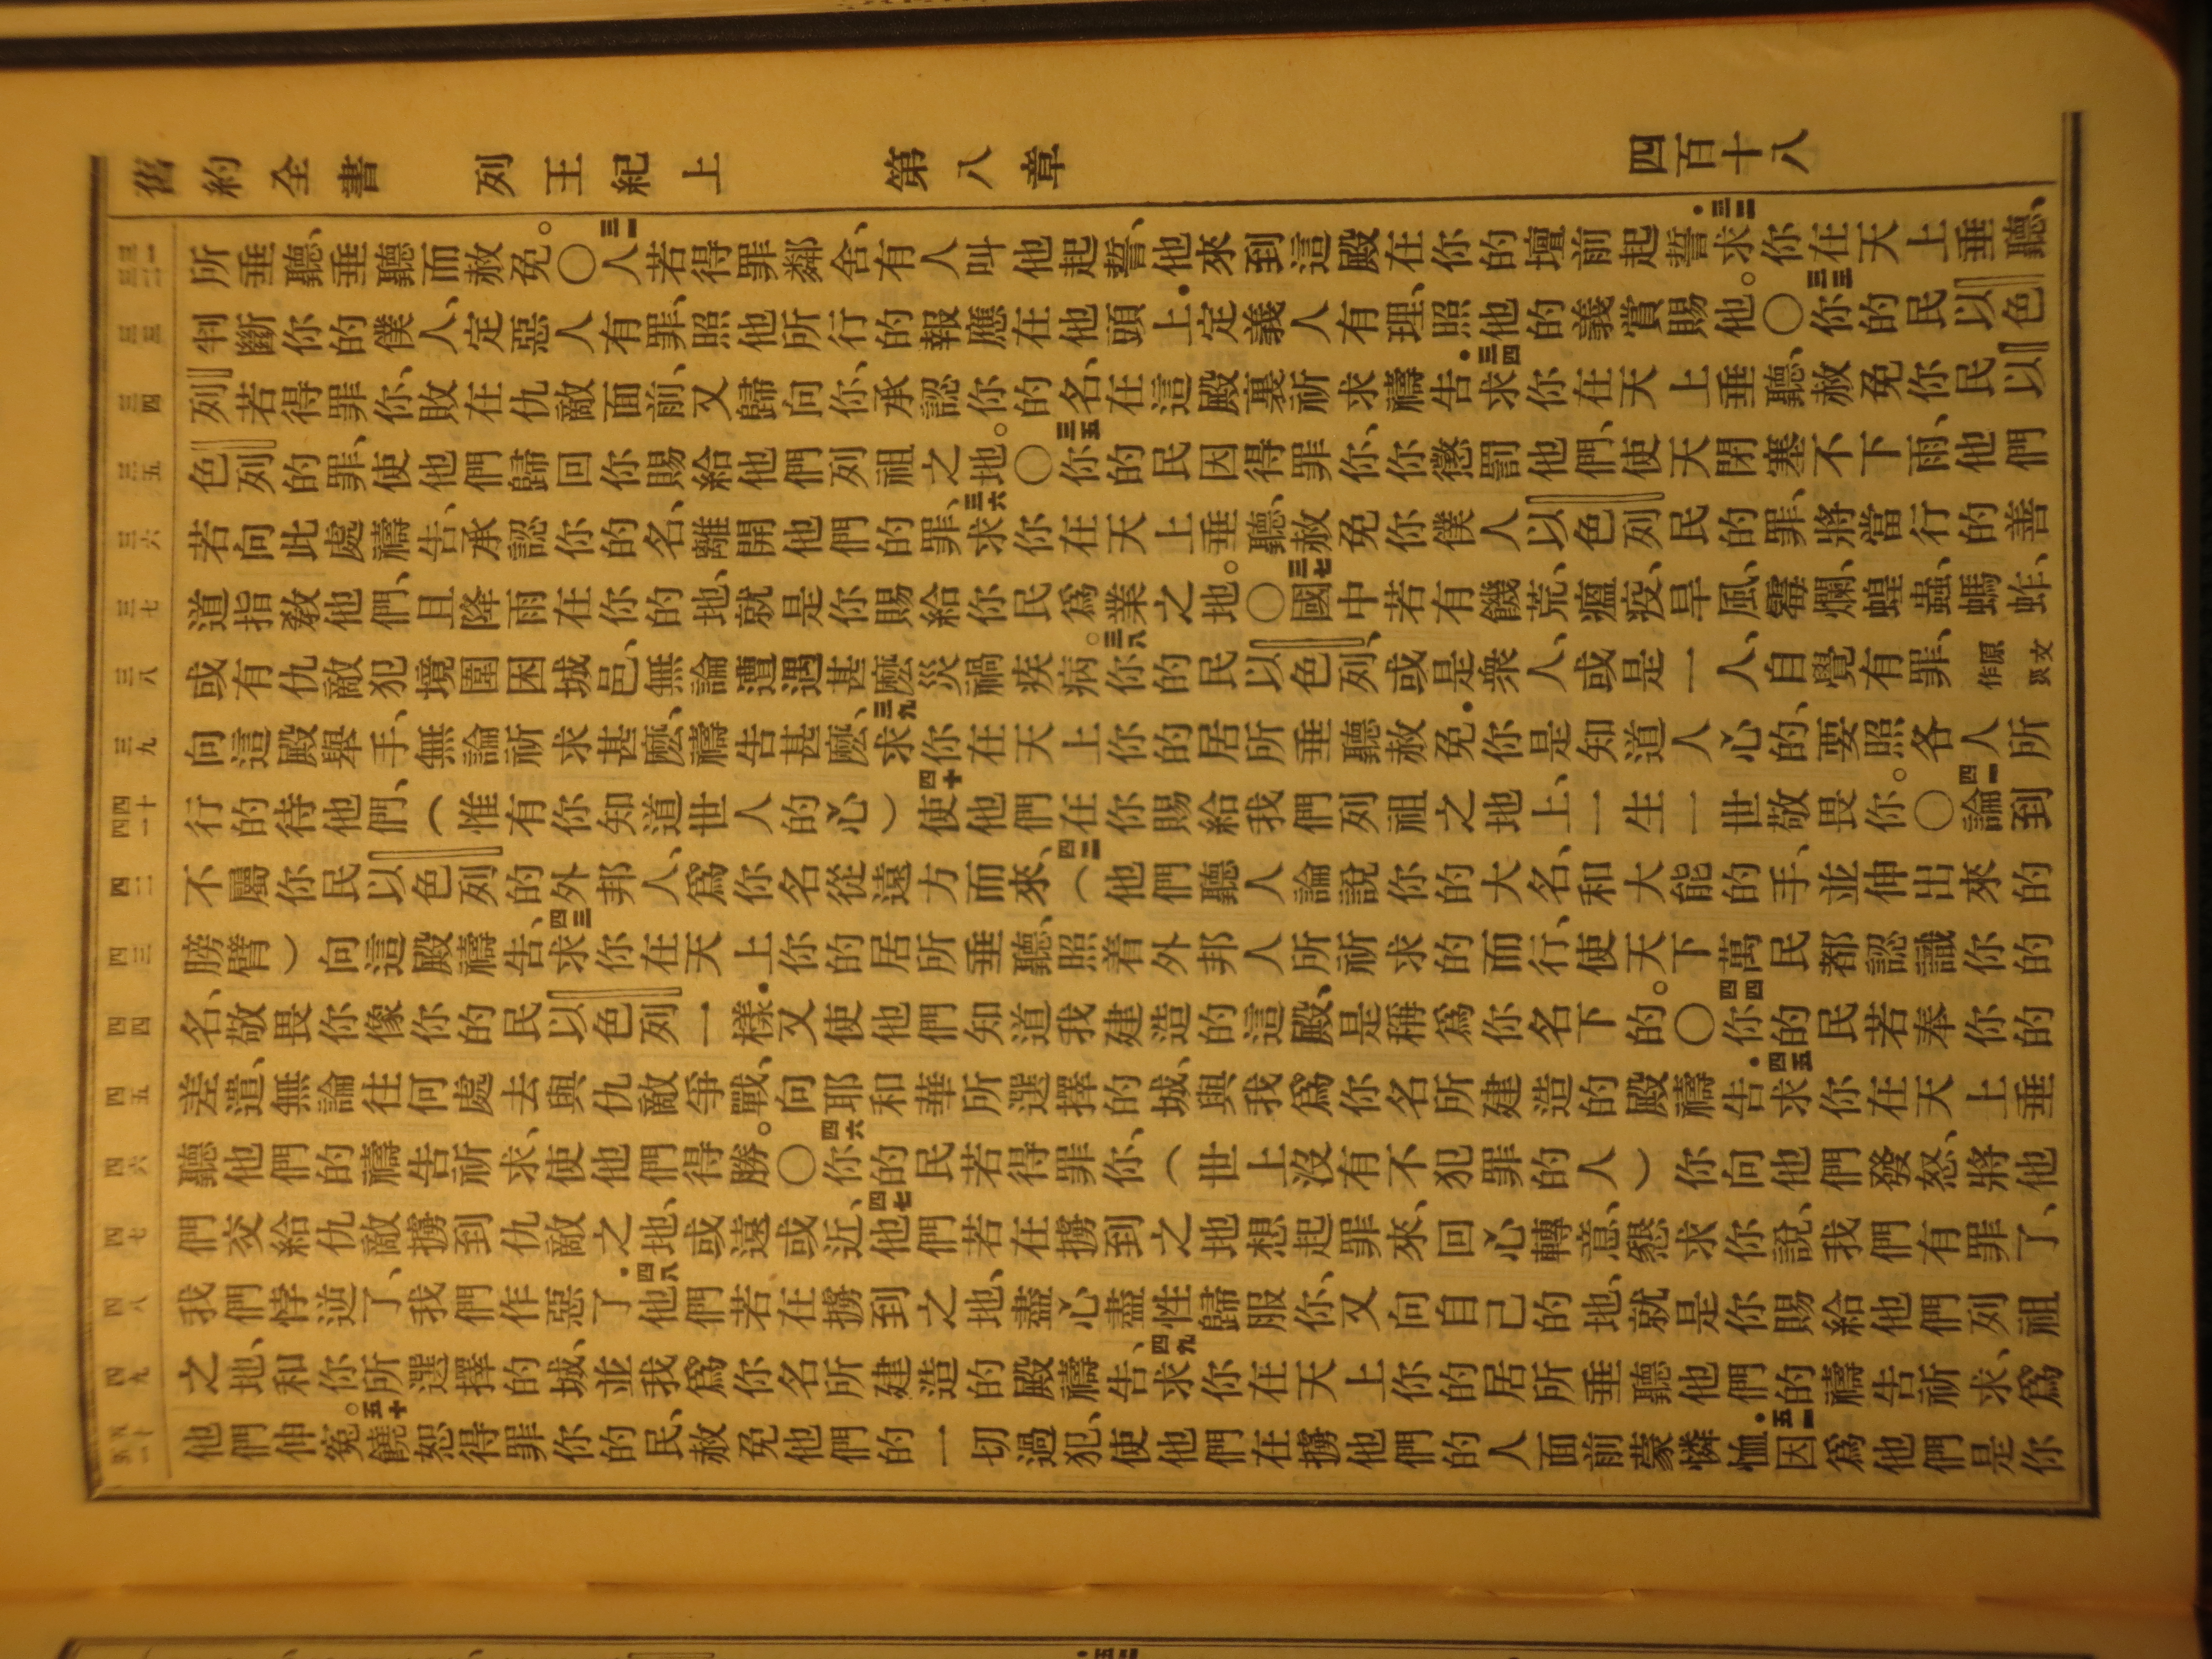 舊約全書 列王紀上 第八章 四百十八
所垂聽、垂聽而赦免。○三一人若得罪鄰舍、有人叫他起誓、他來到這殿在你的壇前起誓.三二求你在天上垂聽、
判斷你的僕人、定惡人有罪、照他所行的報應在他頭上.定義人有理、照他的義賞賜他。○三三你的民以色
列若得罪你、敗在仇敵面前、又歸向你、承認你的名、在這殿裏祈求禱告.三四求你在天上垂聽、赦免你民以
色列的罪、使他們歸回你賜給他們列祖之地。○三五你的民因得罪你、你懲罰他們、使天閉塞不下雨、他們
若向此處禱告、承認你的名、離開他們的罪、三六求你在天上垂聽、赦免你僕人以色列民的罪、將當行的善
道指敎他們、且降雨在你的地、就是你賜給你民爲業之地。○三七國中若有饑荒、瘟疫、旱風、霉爛、蝗蟲、螞蚱、
或有仇敵犯境圍困城邑、無論遭遇甚麽災禍疾病。三八你的民以色列、或是衆人、或是一人、自覺有罪、原文作災
向這殿舉手、無論祈求甚麽、禱告甚麽、三九求你在天上你的居所垂聽赦免.你是知道人心的、要照各人所
行的待他們、（惟有你知道世人的心）四十使他們在你賜給我們列祖之地上、一生一世敬畏你。○四一論到
不屬你民以色列的外邦人、爲你名從遠方而來、四二（他們聽人論說你的大名、和大能的手、並伸出來的
膀臂）向這殿禱告、四三求你在天上你的居所垂聽、照着外邦人所祈求的而行、使天下萬民都認識你的
名、敬畏你像你的民以色列一樣.又使他們知道我建造的這殿、是稱爲你名下的。○四四你的民若奉你的
差遣、無論往何處去與仇敵爭戰、向耶和華所選擇的城、與我爲你名所建造的殿禱告.四五求你在天上垂
聽他們的禱告祈求、使他們得勝。○四六你的民若得罪你、（世上沒有不犯罪的人）你向他們發怒、將他
們交給仇敵擄到仇敵之地、或遠或近、四七他們若在擄到之地想起罪來、回心轉意、懇求你說、我們有罪了、
我們悖逆了、我們作惡了.四八他們若在擄到之地、盡心盡性歸服你、又向自己的地、就是你賜給他們列祖
之地、和你所選擇的城、並我爲你名所建造的殿禱告、四九求你在天上你的居所垂聽他們的禱告祈求、爲
他們伸寃。五十饒恕得罪你的民、赦免他們的一切過犯、使他們在擄他們的人面前蒙憐恤.五一因爲他們是你